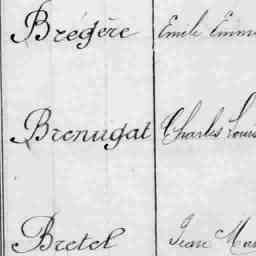 Bregère Emile Emm
Brenugat Charles Louis
Bretel Jean Mar